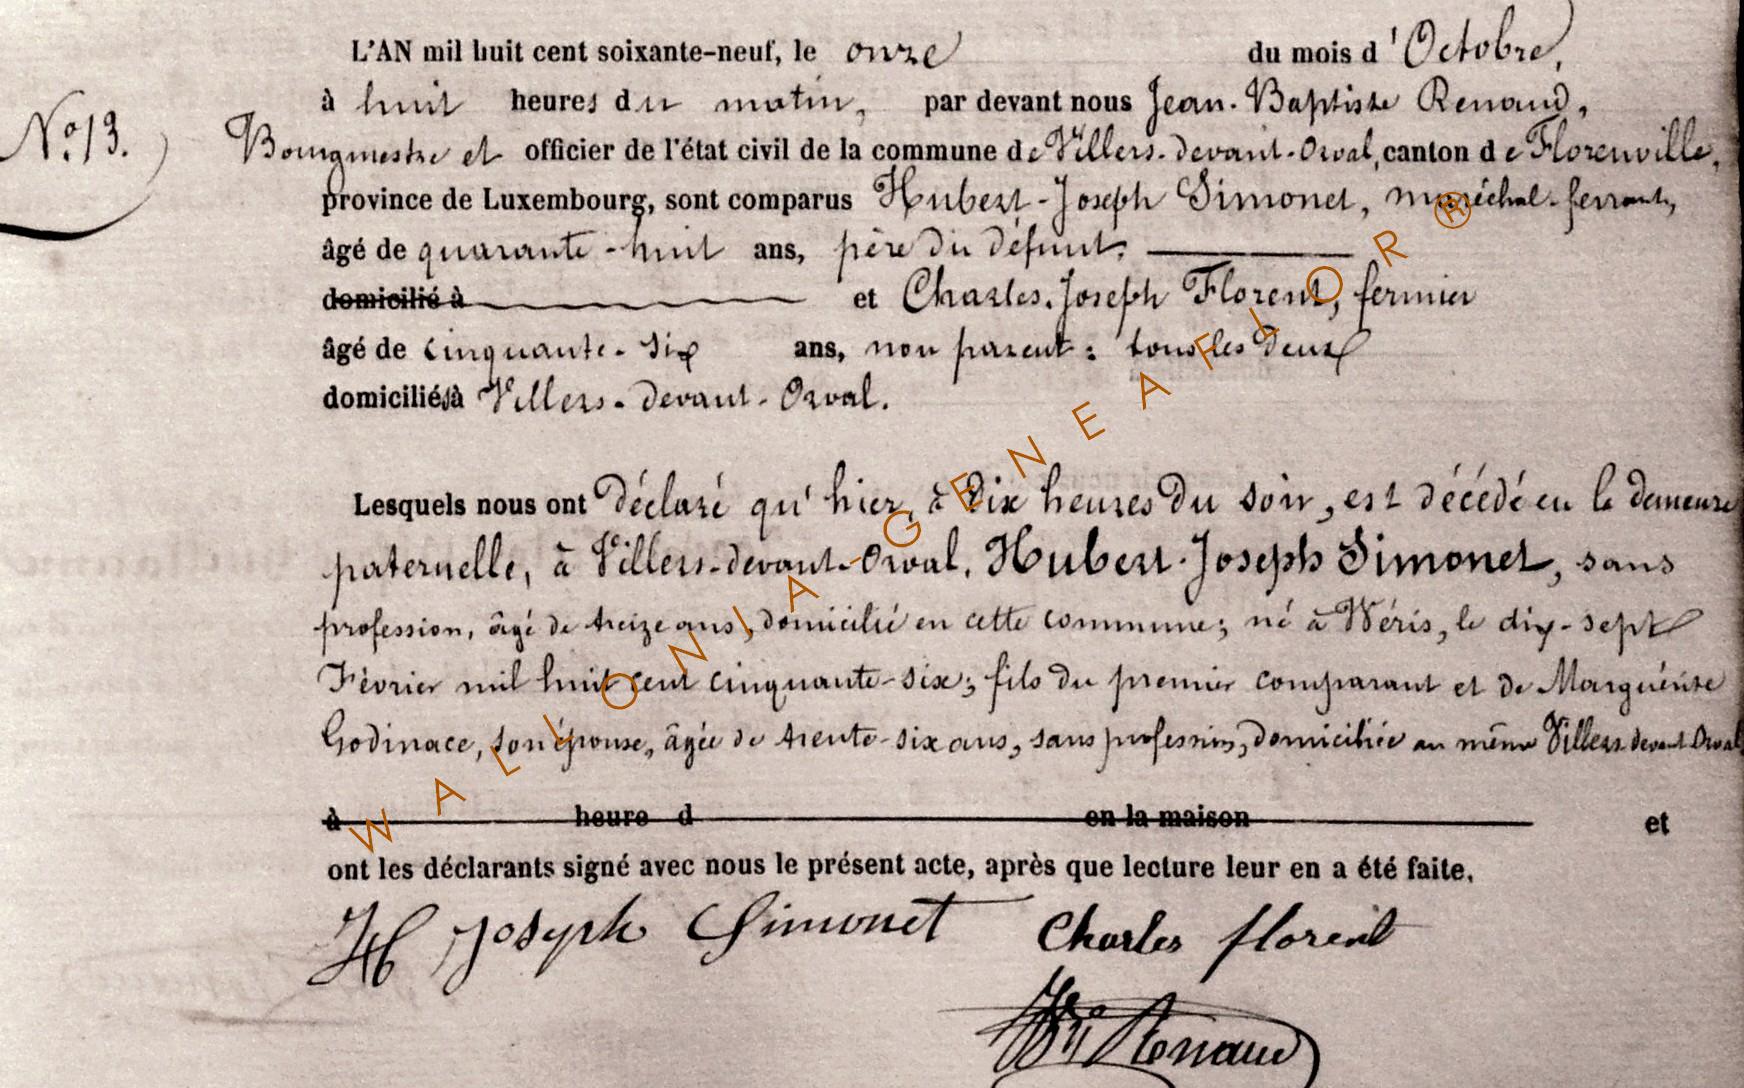 L'AN mil huit cent soixante-neuf, le onze du mois d'Octobre,
à huit heures du matin, par devant nous Jean-Baptiste Renaud,
N° 13.
Bourgmestre et officier de l'état civil de la commune de Villers-devant-Orval, canton de Florenville,
province de Luxembourg, sont comparus Hubert-Joseph Simonet, maréchal-ferrant,
âgé de quarante-huit ans, père du défunt.
domicilié à et Charles-Joseph Florent, fermier
âgé de cinquante-six ans, non parent: tous les deux
domiciliés à Villers-devant-Orval.
Lesquels nous ont déclaré qu'hier, à dix heures du soir, est décédé en la demeure
paternelle, à Villers-devant-Orval, Hubert-Joseph Simonet, sans
profession, âgé de treize ans, domicilié en cette commune; né à Wéris, le dix-sept
Février mil huit cent cinquante-six; fils du premier comparant et de Marguérite
Godinace, son épouse, âgée de trente-six ans, sans profession, domiciliée au même Villers-devant-Orval
à heure d en la maison et
ont les déclarants signé avec nous le présent acte, après que lecture leur en a été faite.
H Joseph Simonet Charles florent
JBte Renaud
WALLONIA-GENEAFLOR®